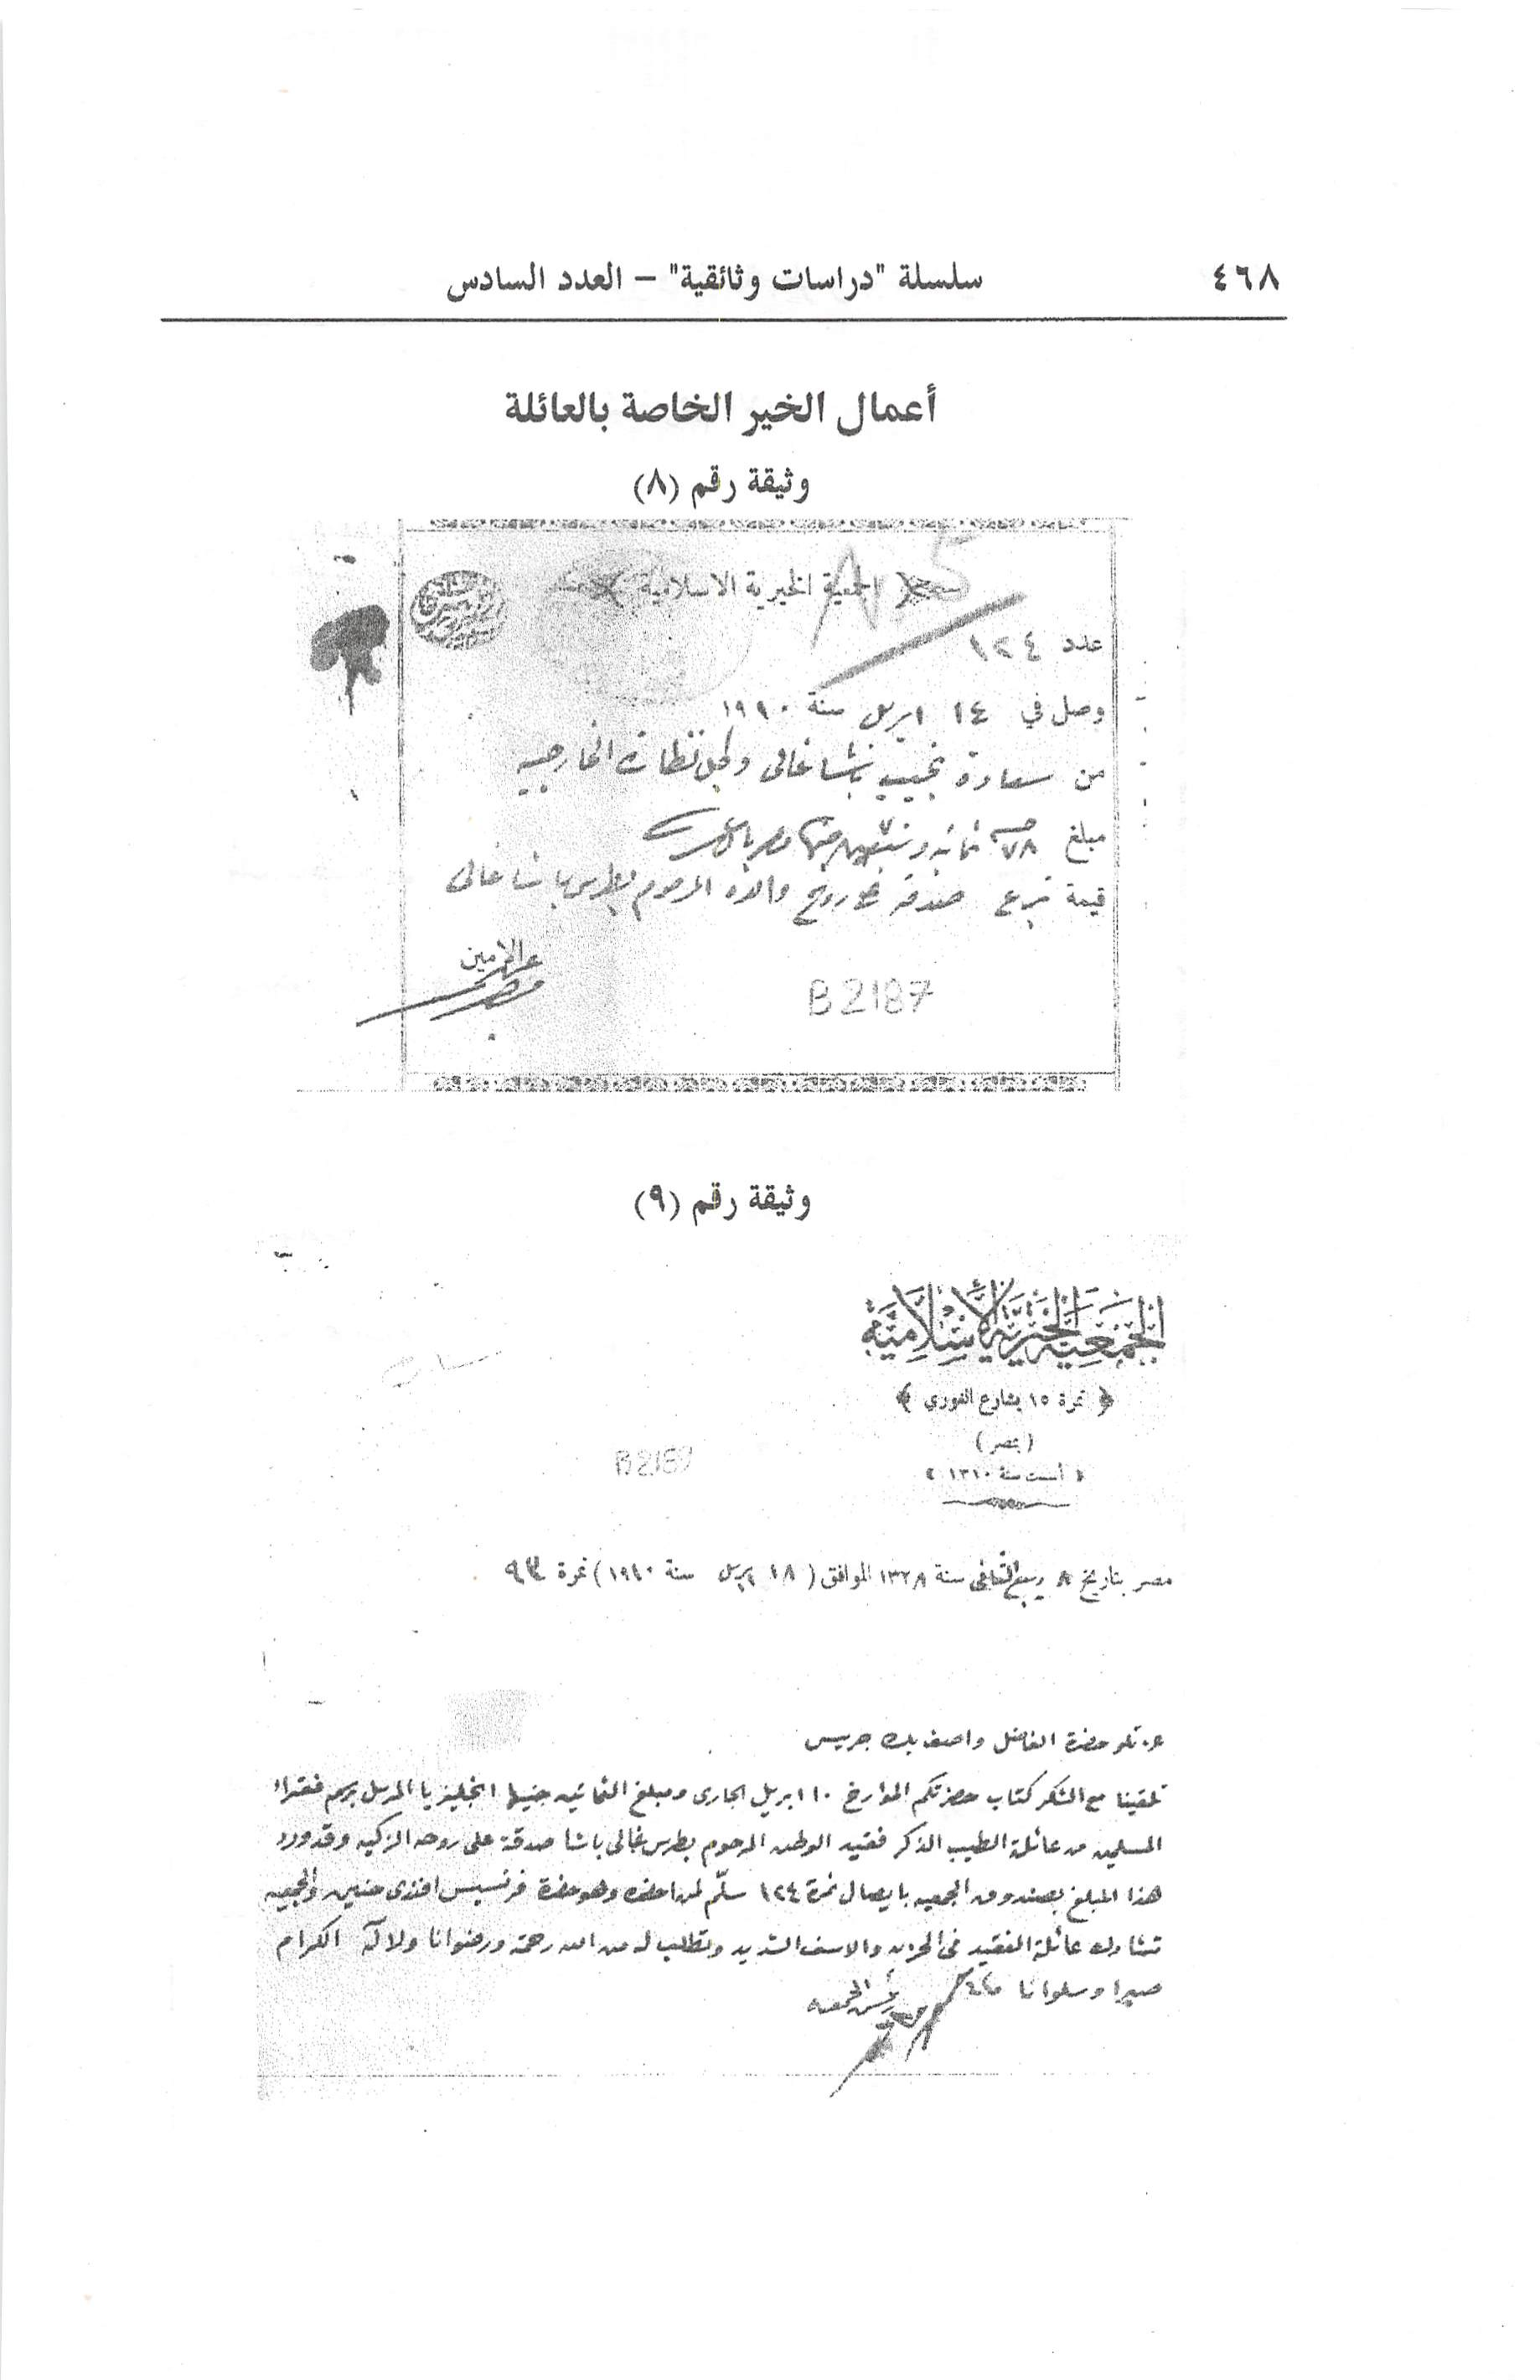 ٤٦٨
سلسلة "دراسات وثائقية" – العدد السادس
أعمال الخير الخاصة بالعائلة
وثيقة رقم (٨)
الجمعية الخيرية الاسلامية
عدد ١٢٤
وصل في ١٤ ابريل سنة ١٩١٠
من سعادة نجيب باشا غالى وكيل نظارة الخارجيه
مبلغ ٧٨ ثمانيه وسبعين جنيها مصريا
قيمة تبرع صدقة على روح والده المرحوم بطرس باشا غالى
B2187
وثيقة رقم (٩)
الجمعية الخيرية الإسلامية
﴿ نمرة ١٥ بشارع الغوري ﴾
(بمصر)
﴿ أسست سنة ١٣١٠ ﴾
B2187
مصر بتاريخ ٨ ربيع الثانى سنة ١٣٢٨ الموافق ( ١٨ ابريل سنة ١٩١٠ ) نمرة ٩٣
حضرة الفاضل واصف بك جريس
تلقينا مع الشكر كتاب حضرتكم المؤرخ ١٠ ابريل الجارى ومبلغ الثمانين جنيها انجليزيا المرسل برسم فقراء
المسلمين من عائلة الطيب الذكر فقيد الوطن المرحوم بطرس غالى باشا صدقة على روحه الزكيه وقد ورد
هذا المبلغ بصندوق الجمعيه بايصال نمرة ١٢٤ سلّم لمن احضره وهو حضرة فرنسيس افندى حنين والجمعيه
تشارك عائلة الفقيد فى الحزن والاسف الشديد وتطلب له من الله رحمة ورضوانا ولآله الكرام
صبرا وسلوانا
رئيس الجمعيه